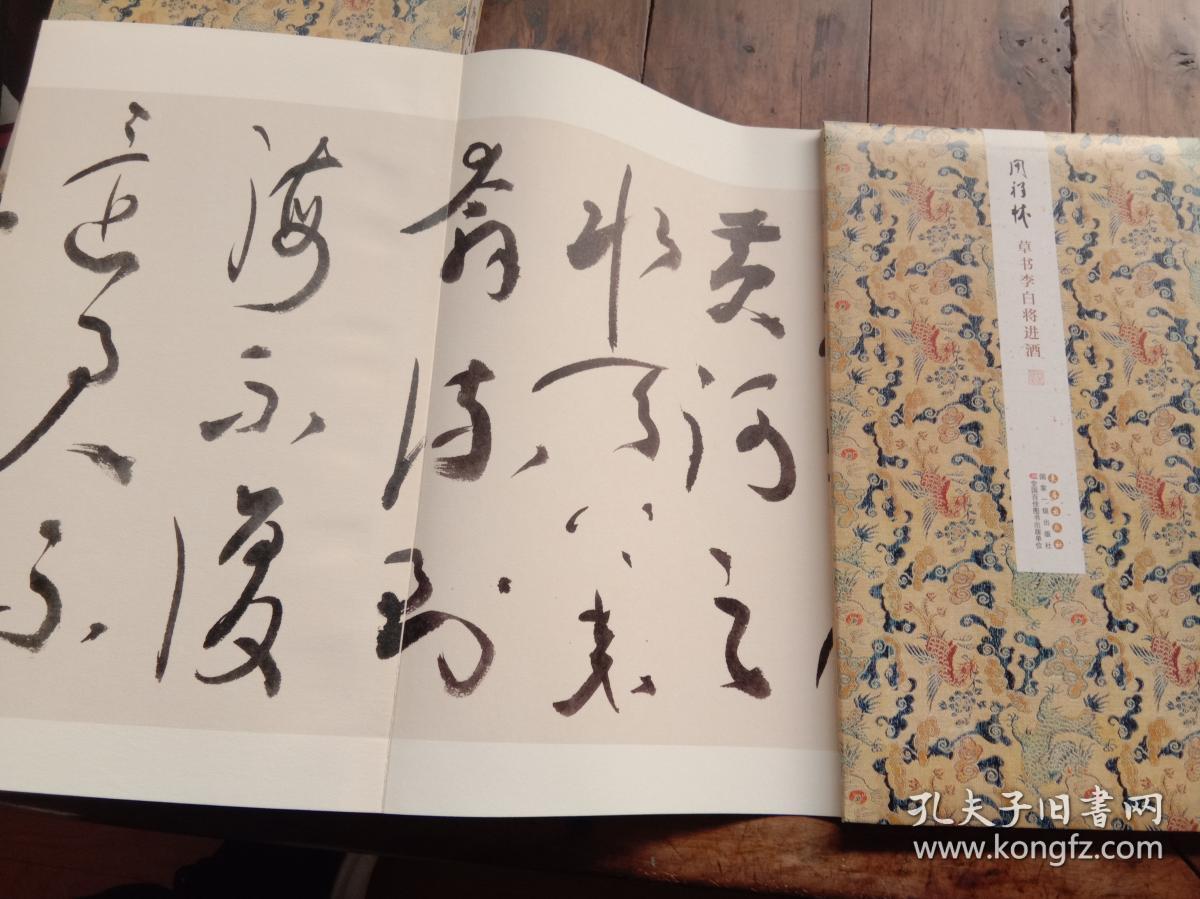 黄河之
水天上来
奔流到
海不復
君不
周祥林
草书李白将进酒
国家一级出版社
全国百佳图书出版单位
孔夫子旧書网
www.kongfz.com